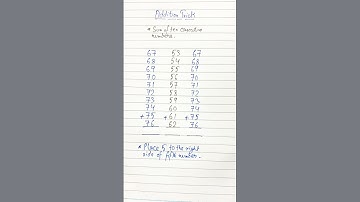 Addition Trick
* Sum of ten consecutive
numbers.
67 53 67
68 54 68
69 55 69
70 56 70
71 57 71
72 58 72
73 59 73
74 60 74
+75 +61 +75
76 62 76
* Place 5 to the right
side of fifth number.